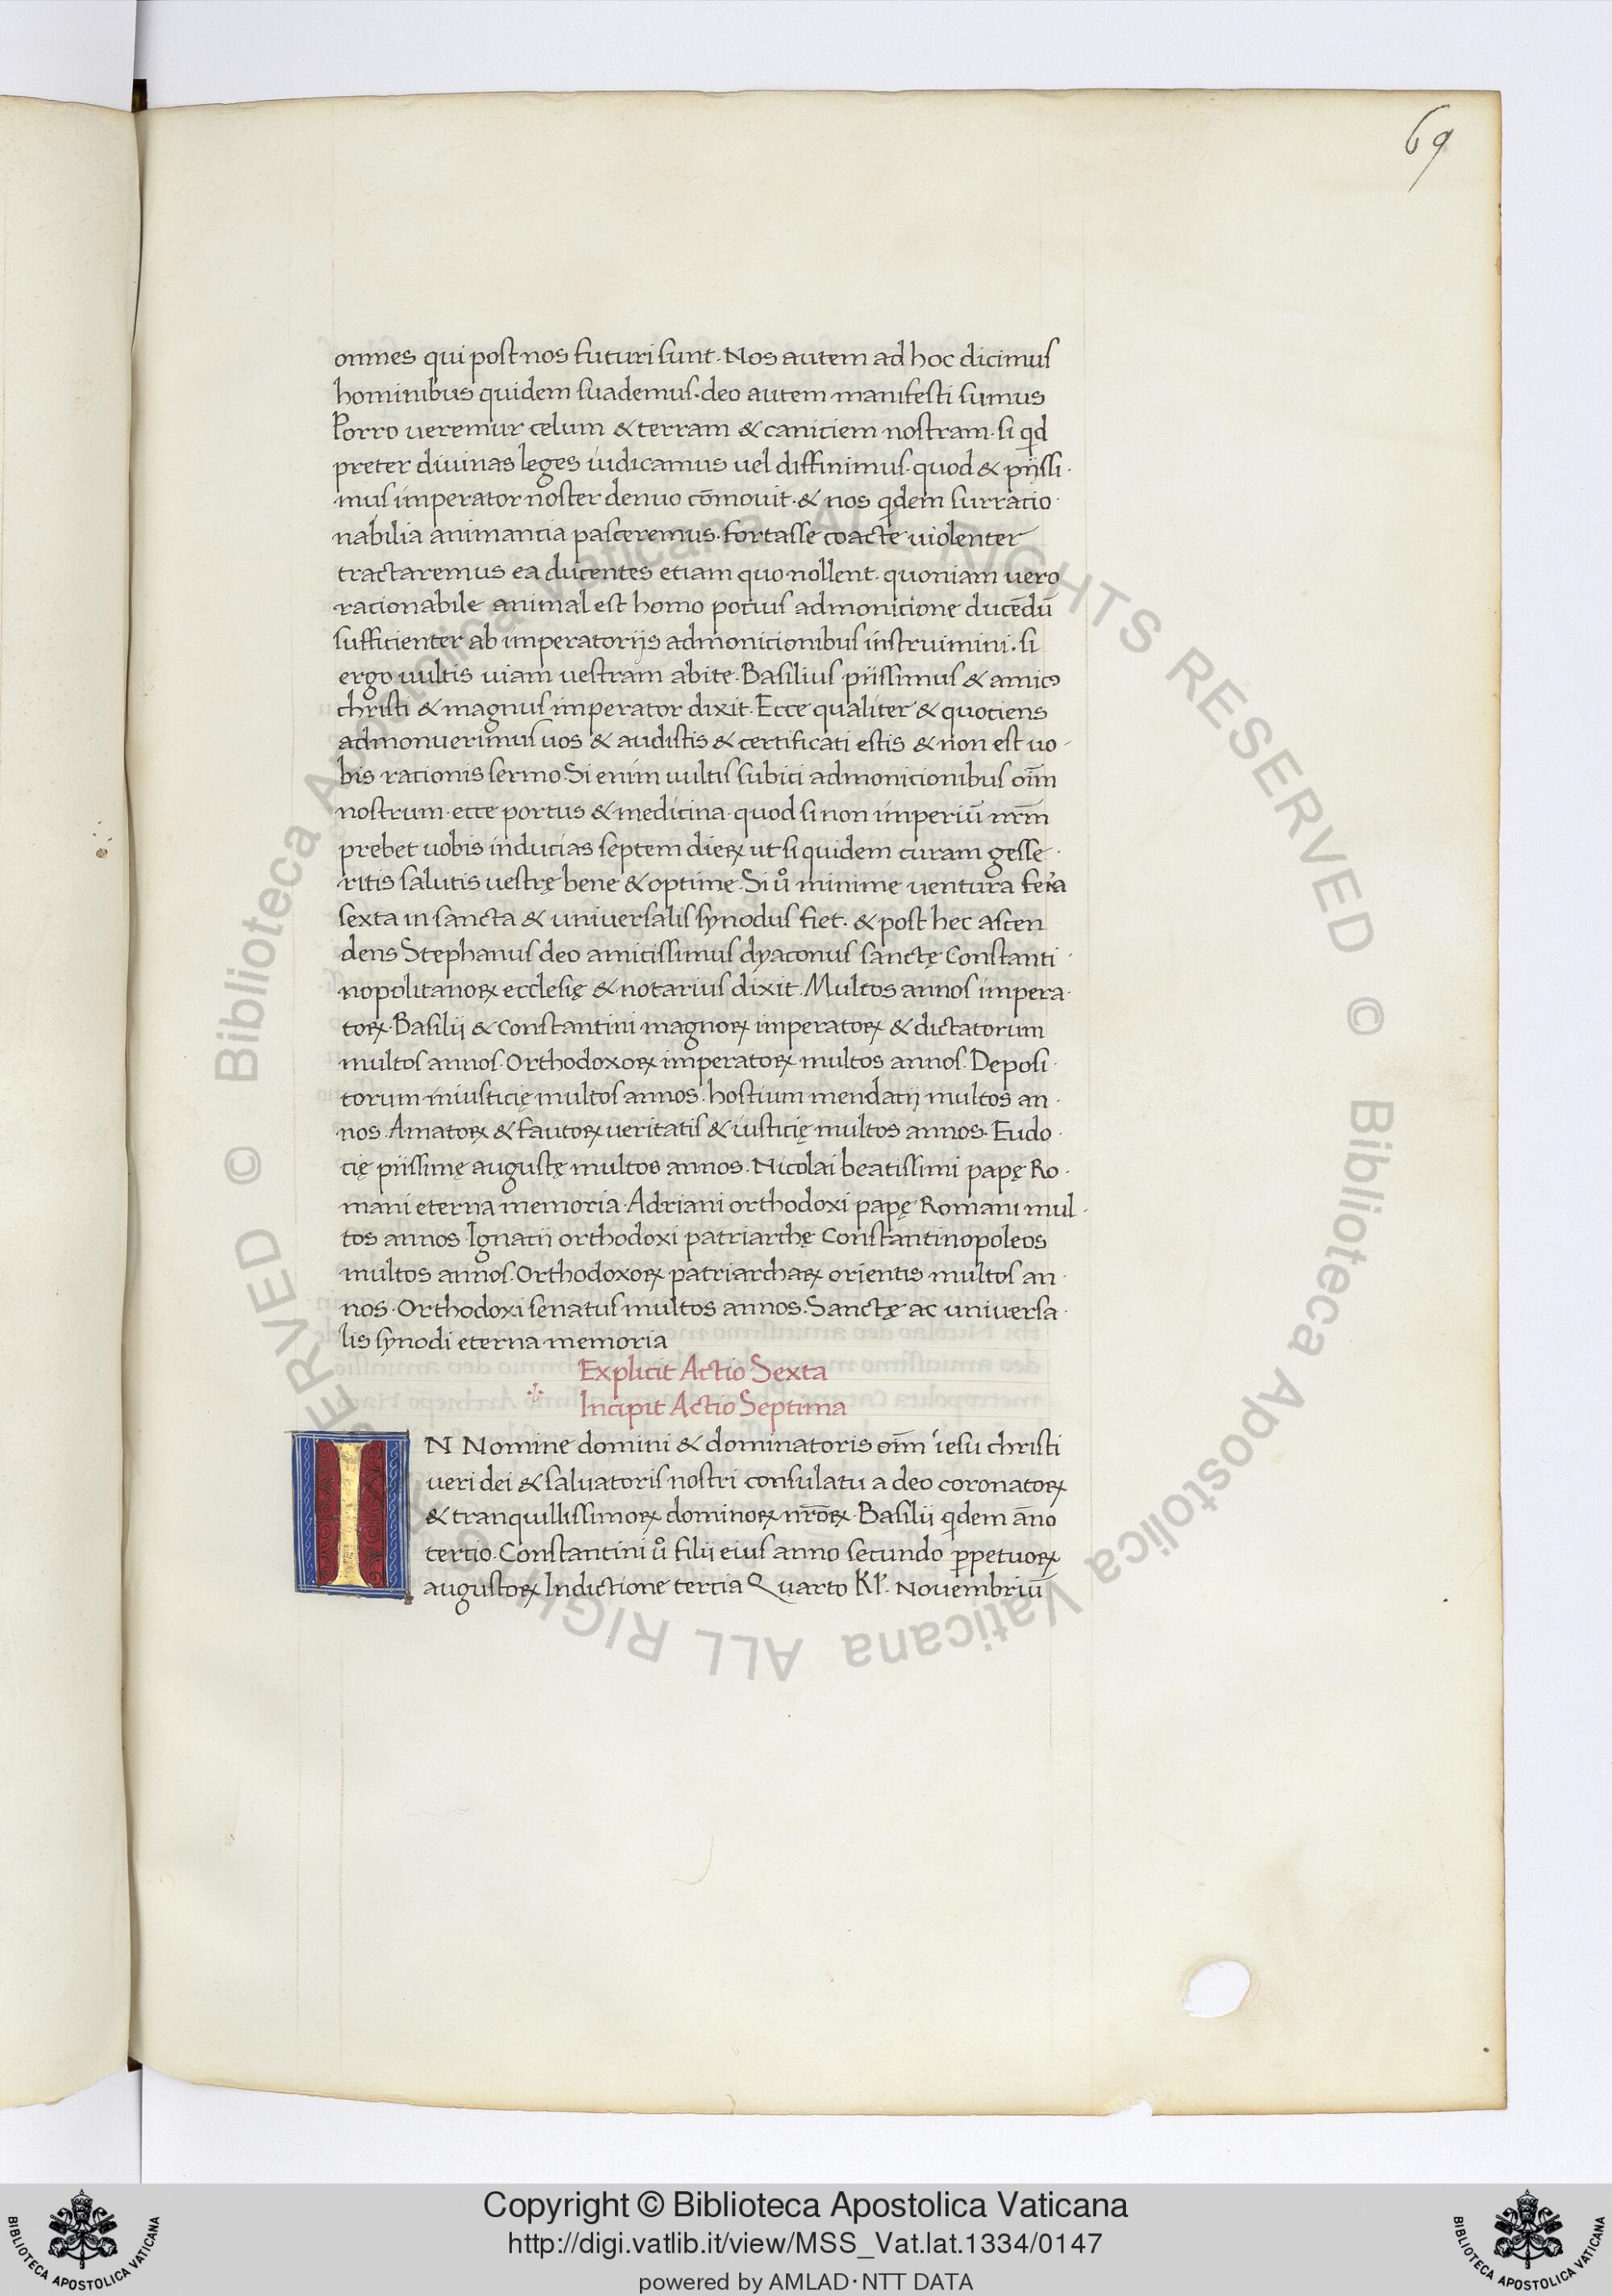 69
omnes qui post nos futuri sunt. Nos autem ad hoc dicimus
hominibus quidem suademus. deo autem manifesti sumus
Porro ueremur celum & terram & caniciem nostram. si qd
preter diuinas leges iudicamus uel diffinimus. quod & pijssi.
mus imperator noster denuo cōmouit. & nos qdem surratio
nabilia animantia pasceremus. fortasse coacte uiolenter
tractaremus ea ducentes etiam quo nollent. quoniam uero
racionabile animal est homo pocius admonicione ducēdū
sufficienter ab imperatorijs admonicionibus instruimini. si
ergo uultis uiam uestram abite. Basilius piissimus & amicꝰ
christi & magnus imperator dixit. Ecce qualiter & quociens
admonuerimus uos & audistis & certificati estis & non est uo-
bis racionis sermo. Si enim uultis subici admonicionibus oīm
nostrum. ecce portus & medicina. quod si non imperiū nr̄m
prebet uobis inducias septem dieꝝ ut si quidem curam gesse.
ritis salutis uestrę bene & optime. Si uº minime uentura feria
sexta in sancta & uniuersalis synodus fiet. & post hec ascen
dens Stephanus deo amicissimus dyaconus sanctę Constanti.
nopolitanoꝝ ecclesię & notarius dixit. Multos annos impera.
toꝝ. Basilij & Constantini magnoꝝ imperatoꝝ & dictatorum
multos annos. Orthodoxoꝝ imperatoꝝ multos annos. Deposi.
torum iniusticię multos annos. hostium mendacij multos an.
nos. Amatoꝝ & fautoꝝ ueritatis & iusticię multos annos. Eudo.
cię piissimę augustę multos annos. Nicolai beatissimi papę Ro.
mani eterna memoria. Adriani orthodoxi papę Romani mul.
tos annos. Ignacii orthodoxi patriarchę Constantinopoleos
multos annos. Orthodoxoꝝ patriarchaꝝ orientis multos an.
nos. Orthodoxi senatus multos annos. Sanctę ac uniuersa.
lis synodi eterna memoria
Explicit Actio Sexta
Incipit Actio Septima
IN Nomine domini & dominatoris oīm iesu christi
ueri dei & saluatoris nostri consulatu a deo coronatoꝝ
& tranquillissimoꝝ dominoꝝ nr̄oꝝ. Basilii qdem āno
tertio. Constantini uº filii eius anno secundo ꝑpetuoꝝ
augustoꝝ Indictione tercia Quarto Kł. Nouembriū
© Biblioteca Apostolica Vaticana ALL RIGHTS RESERVED © Biblioteca Apostolica Vaticana ALL RIGHTS RESERVED
Copyright © Biblioteca Apostolica Vaticana
http://digi.vatlib.it/view/MSS_Vat.lat.1334/0147
powered by AMLAD·NTT DATA
BIBLIOTECA APOSTOLICA VATICANA
BIBLIOTECA APOSTOLICA VATICANA